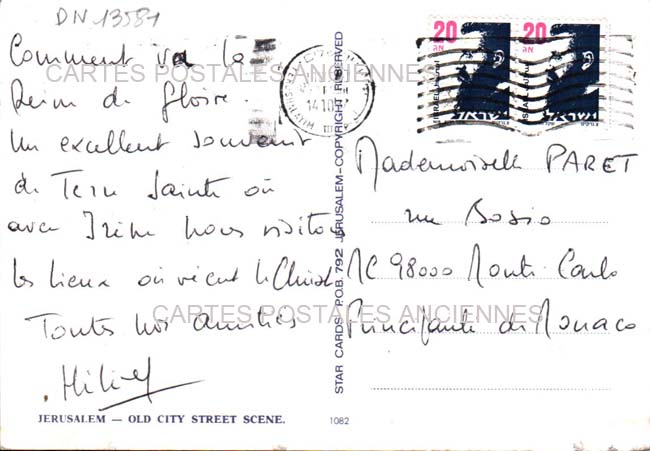 DN 13581
Comment va la
Reine de gloire.
Un excellent souvenir
de Terre Sainte où
avec Irène nous visitons
les lieux où vécut le Christ
Toutes nos amitiés
JERUSALEM — OLD CITY STREET SCENE.
1082
STAR CARDS – P.O.B. 792 JERUSALEM – COPYRIGHT RESERVED
20
20
ISRAEL
ISRAEL
ישראל
ישראל
Mademoiselle PARET
rue Bosio
MC 98000 Monte-Carlo
Principauté de Monaco
CARTES POSTALES ANCIENNES
CARTES POSTALES ANCIENNES